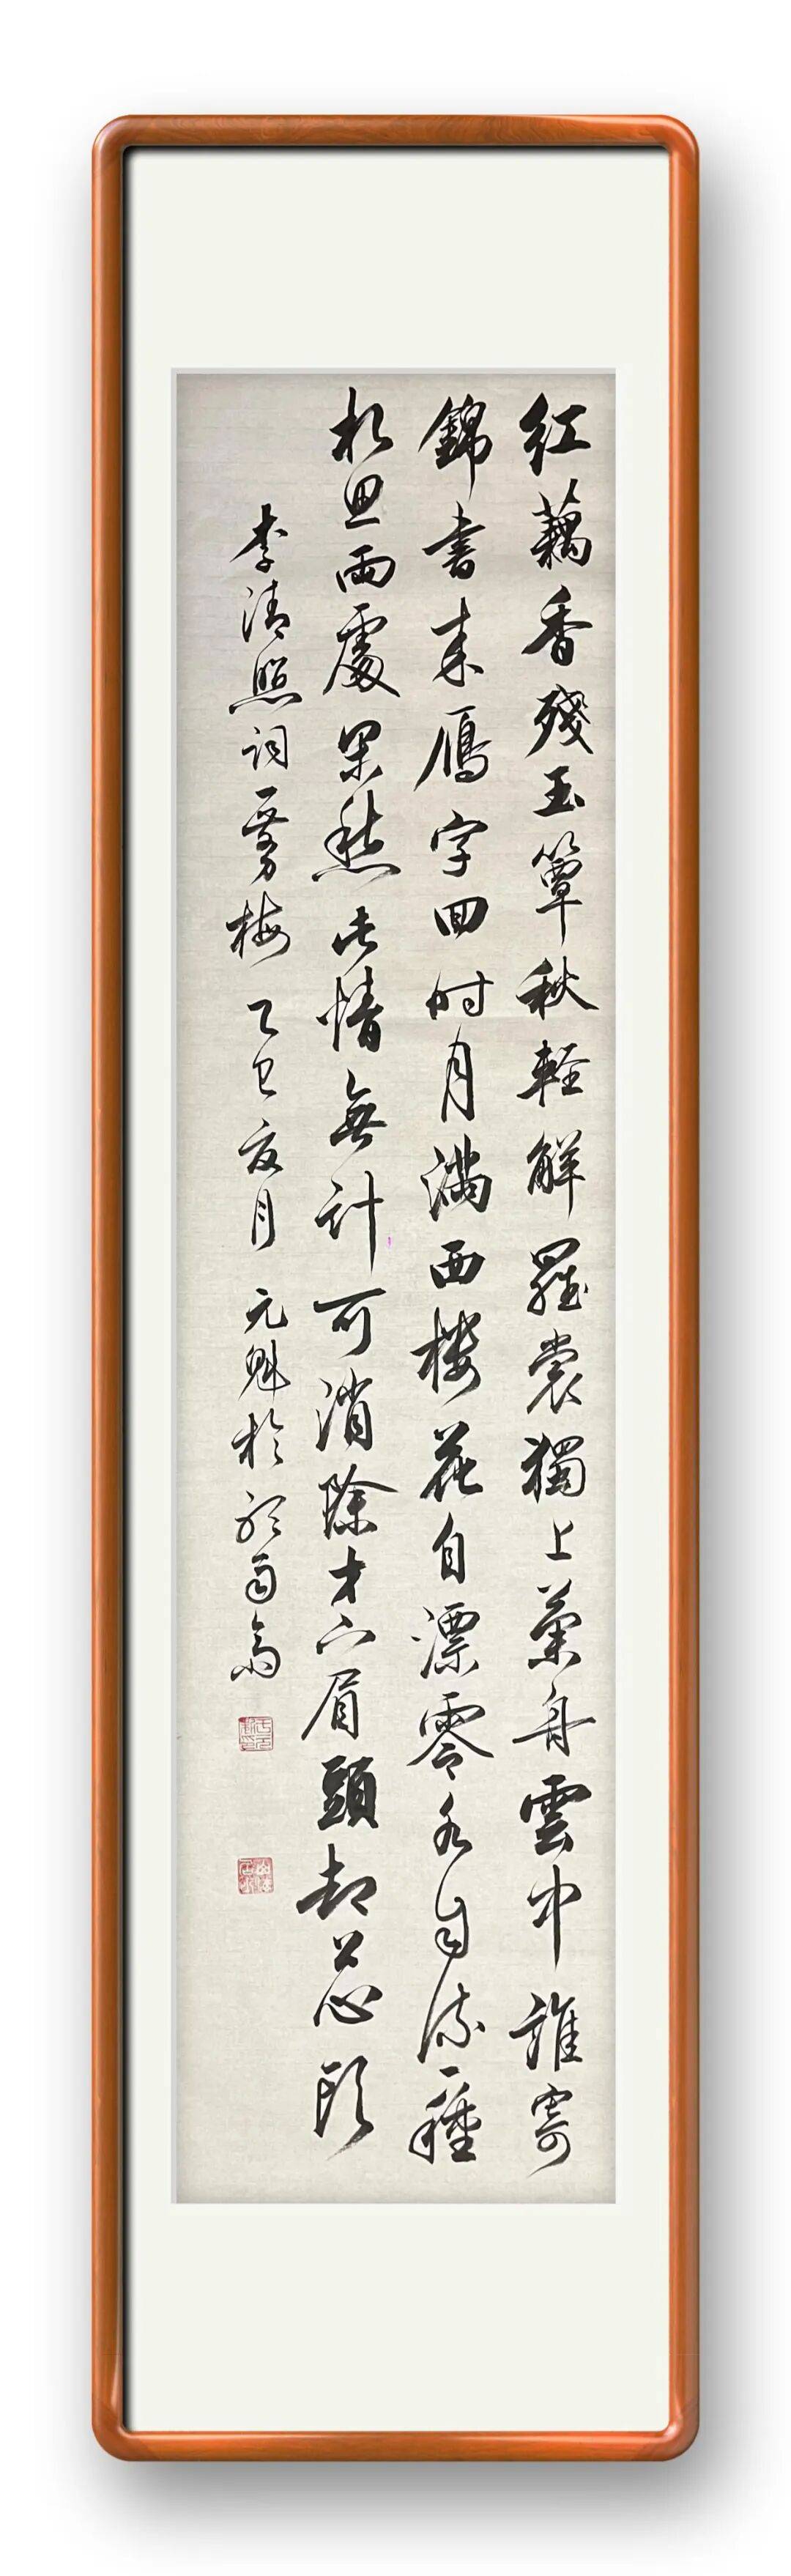 紅藕香殘玉簟秋輕解羅裳獨上蘭舟雲中誰寄
錦書来雁字回时月滿西樓花自漂零水自流一種
相思兩處閑愁此情無計可消除才下眉頭却上心頭
李清照词一剪梅 乙巳夏月 元魁於聽雨斋